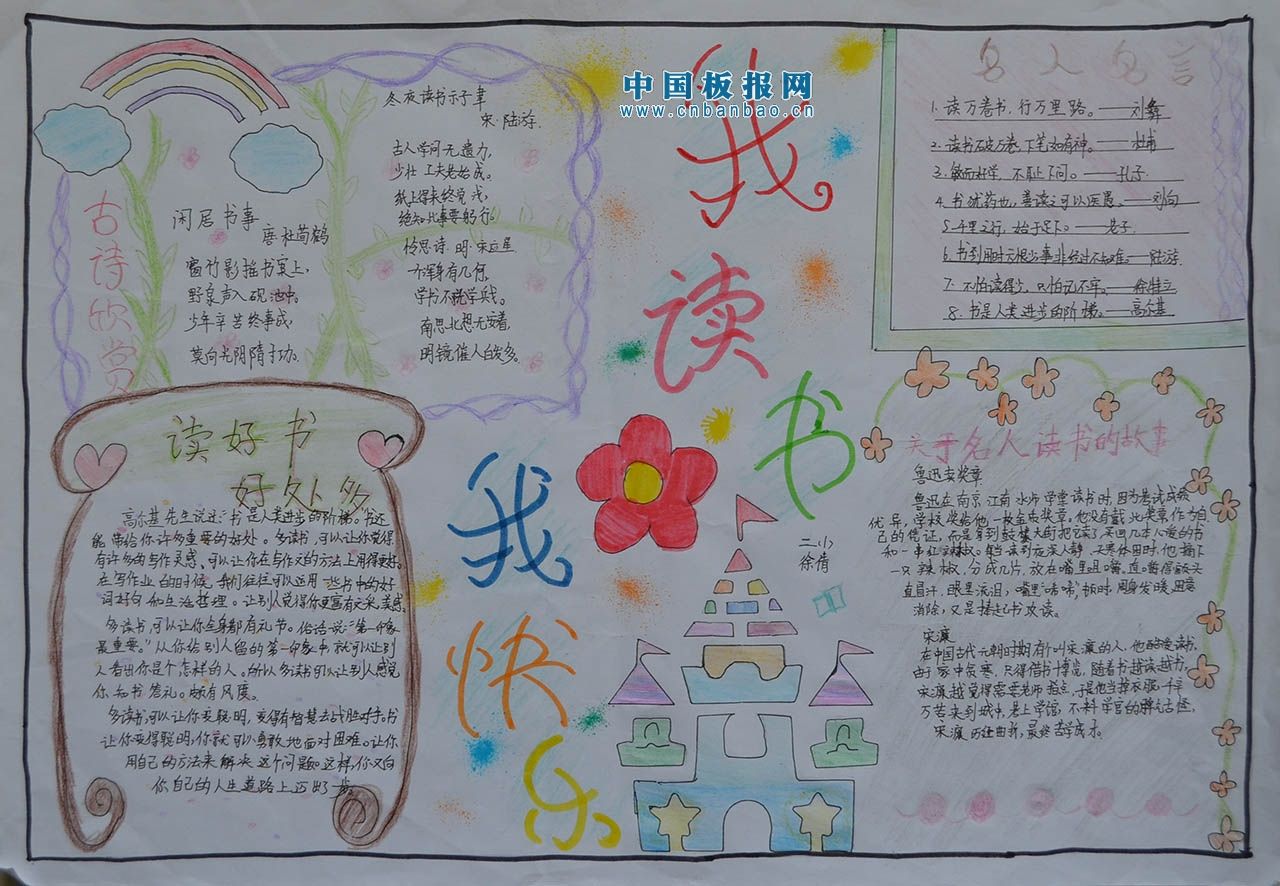 中国板报网
www.cnbanbao.cn
我读书
我快乐
二(1)
徐倩
古诗欣赏
闲居书事
唐 杜荀鹤
窗竹影摇书案上,
野泉声入砚池中。
少年辛苦终事成,
莫向光阴惰寸功。
冬夜读书示子聿
宋·陆游
古人学问无遗力,
少壮工夫老始成。
纸上得来终觉浅,
绝知此事要躬行。
怜愚诗·明·宋应星
一个浑身有几何,
学书不就学兵戈。
南思北想无安着,
明镜催人白发多。
名人名言
1.读万卷书,行万里路。——刘彝
2.读书破万卷,下笔如有神。——杜甫
3.敏而好学,不耻下问。——孔子
4.书犹药也,善读之可以医愚。——刘向
5.千里之行,始于足下。——老子
6.书到用时方恨少事非经过不知难。——陆游
7.不怕读得少,只怕记不牢。——徐特立
8.书是人类进步的阶梯。——高尔基
读好书
好处多
高尔基先生说过:"书是人类进步的阶梯。书还
能带给你许多重要的好处。多读书,可以让你觉得
有许多的写作灵感,可以让你在写作文的方法上用得更好。
在写作业的时候,我们往往可以运用一些书中的好
词好句和生活哲理。让别人觉得你更富有文采,美感
多读书可以让你全身都有礼节。俗话说:"第一印象
最重要。"从你给别人留的第一印象中,就可以让别
人看出你是个怎样的人。所以多读书可以让别人感觉
你知书答礼。颇有风度。
多读书可以让你变聪明,变得有智慧去战胜对手。书
让你变得聪明,你就可以勇敢地面对困难。让你
用自己的方法来解决这个问题。这样,你又向
你自己的人生道路上迈出了一步。
关于名人读书的故事
鲁迅卖奖章
鲁迅在南京江南水师学堂读书时,因为考试成绩
优异,学校奖给他一枚金质奖章,他没有戴此奖章作为自
己的凭证,而是拿到鼓楼大街把它卖了,买回几本心爱的书
和一串红辣椒。每当读到夜深人静、天寒体困时,他摘下
一只辣椒,分成几片,放在嘴里咀嚼,直嚼得额头
直冒汗,眼里流泪,嘴里"唏唏",顿时,周身发暖,困意
消除,又是捧起书攻读。
宋濂
在中国古代元朝时期有个叫宋濂的人,他酷爱读书,
由于家中贫寒,只得借书博览,随着书越读越书,
宋濂越觉得需要老师指点,于是他当掉衣服,千辛
万苦来到城中,考上学馆,不料学官的脾气古怪,
宋濂历经曲折,最终苦学成才。